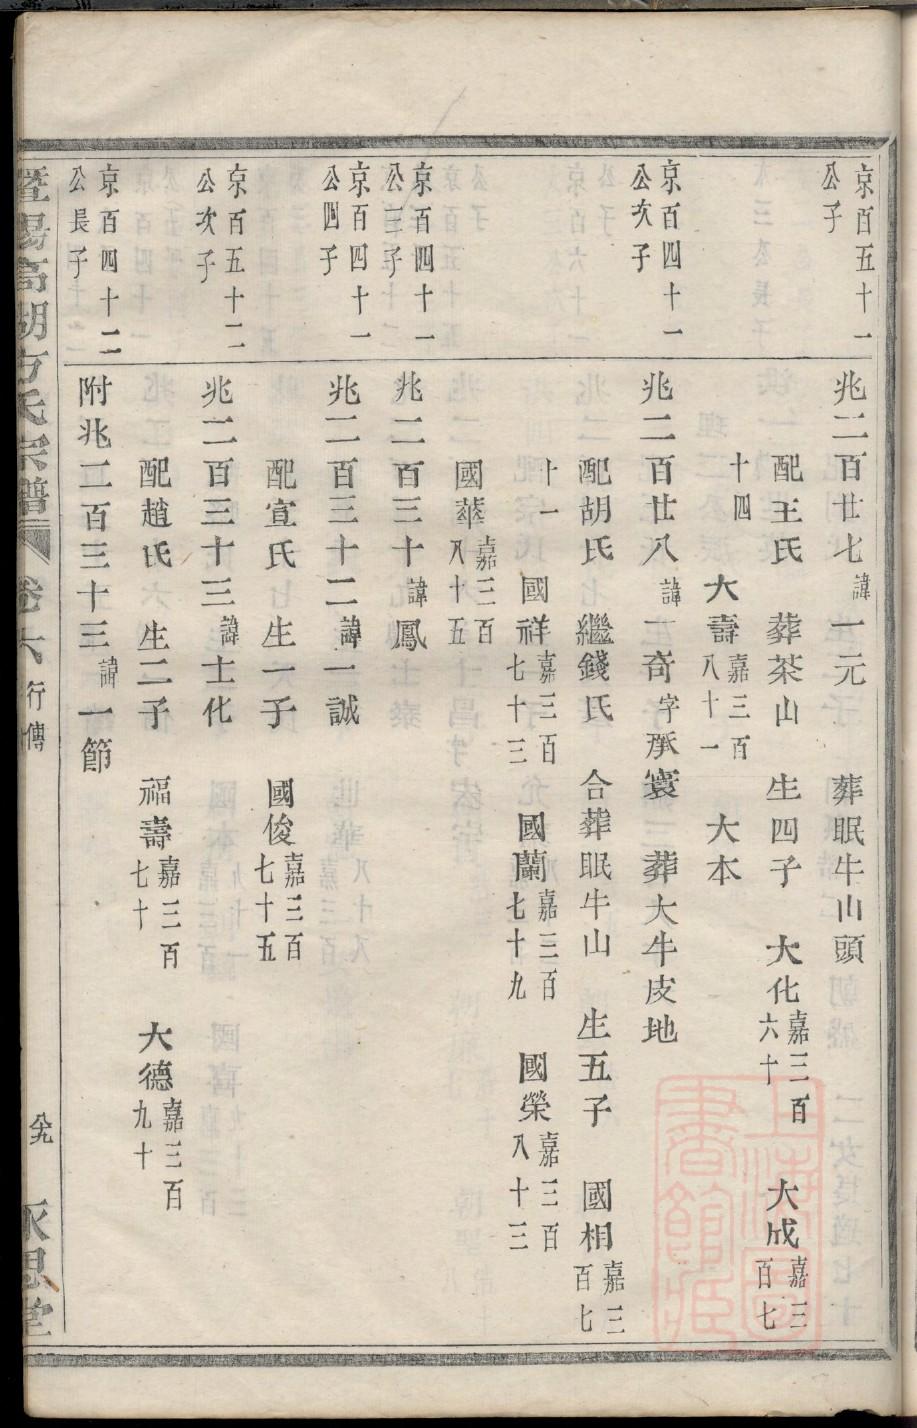 京百五十一
公子
兆二百廿七諱一元 葬眠牛山頭
配王氏 葬茶山 生四子 大化嘉三百六十 大成嘉三百七
十四 大壽嘉三百八十一 大本
京百四十一
公次子
兆二百廿八諱一奇字承寰 葬大牛皮地
配胡氏 繼錢氏 合葬眠牛山 生五子 國相嘉三百七
十一 國祥嘉三百七十三 國蘭嘉三百七十九 國榮嘉三百八十三
國華嘉三百八十五
京百四十一
公三子
兆二百三十諱鳳
京百四十一
公四子
兆二百三十二諱一誠
配宣氏 生一子 國俊嘉三百七十五
京百五十二
公次子
兆二百三十三諱士化
配趙氏 生二子 福壽嘉三百七十 大德嘉三百九十
京百四十二
公長子
附兆二百三十三諱一節
暨陽高湖方氏宗譜 卷六 行傳 永思堂